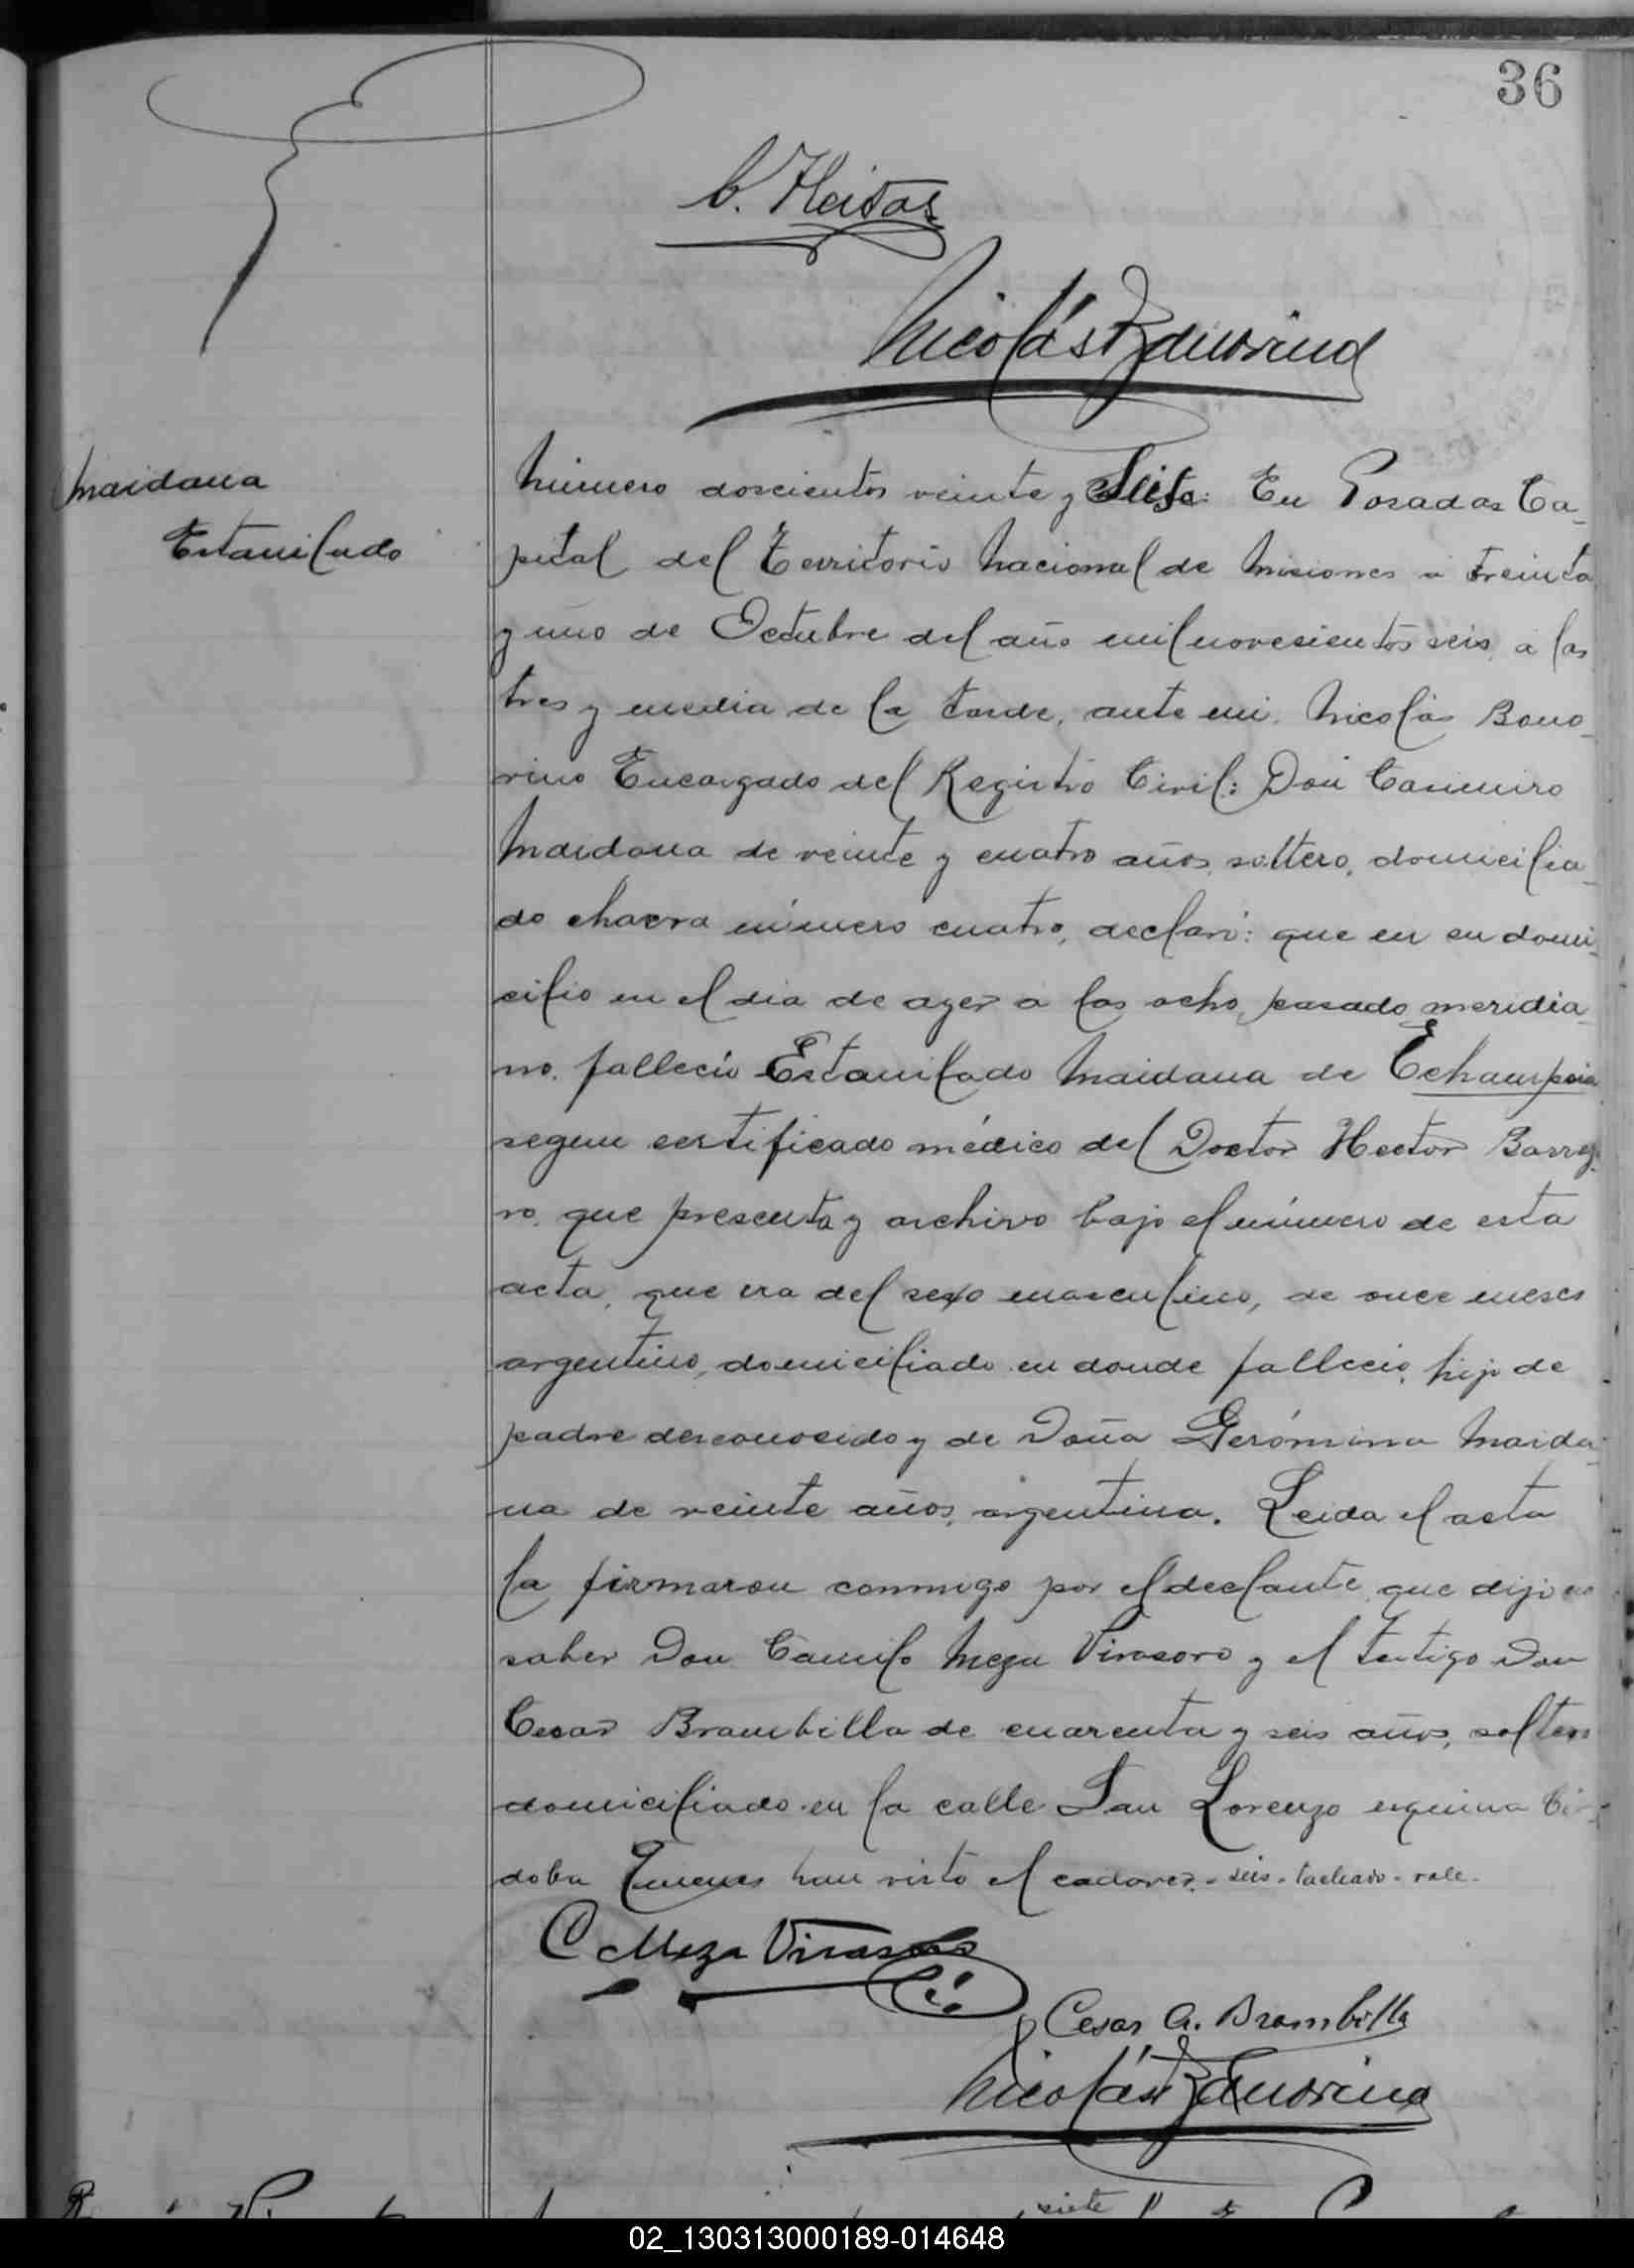 36
Nicolás Bonorino
Maidana
Estanilado
Número doscientos veinte y Seis: En Posadas Ca-
pital del Territorio Nacional de Misiones a treinta
y uno de Octubre del año mil novesientos seis, a las
tres y media de la tarde, ante mi, Nicolás Bono-
rino Encargado del Registro Civil: Don Casimiro
Maidana de veinte y cuatro años, soltero, domicilia-
do chacra número cuatro, declaró: que en su domi-
cilio en el dia de ayer a las ocho, pasado meridia-
no, falleció Estanilado Maidana de Eclampsia
segun certificado médico del Doctor Hector Barrey-
ro, que presenta y archivo bajo el número de esta
acta, que era del sexo masculino, de once meses
argentino, domiciliado en donde falleció, hijo de
padre desconocido y de Doña Gerónima Maida-
na de veinte años, argentina. Leida el acta
la firmaron conmigo por el declante, que dijo no
saber Don Camilo Meza Virasoro y el testigo Don
Cesar Brambilla de cuarenta y seis años, soltero
domiciliado en la calle San Lorenzo esquina Cór-
doba Quienes han visto el cadaver. - seis - tachado - vale -
C Meza Virasoro
Cesar A. Brambilla
Nicolás Bonorino
siete
02_130313000189-014648